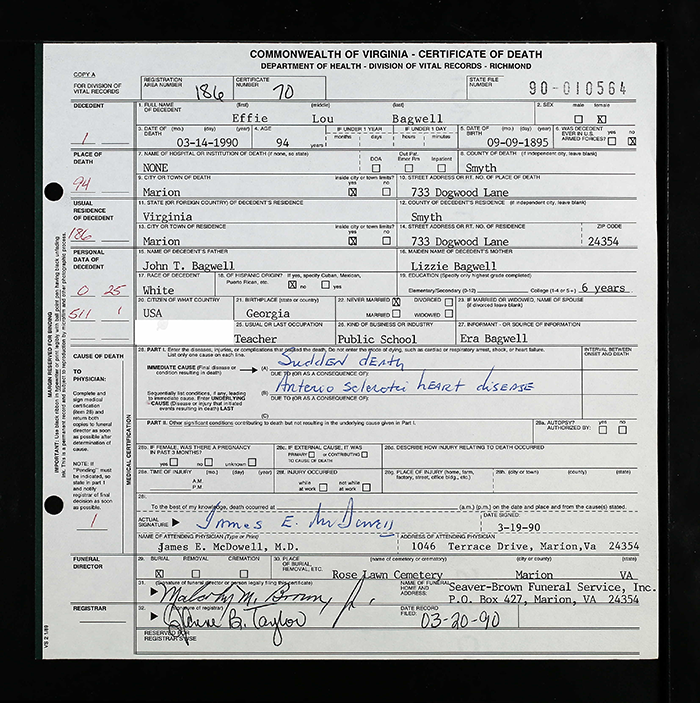 COMMONWEALTH OF VIRGINIA - CERTIFICATE OF DEATH
DEPARTMENT OF HEALTH - DIVISION OF VITAL RECORDS - RICHMOND
COPY A
FOR DIVISION OF VITAL RECORDS
REGISTRATION AREA NUMBER 186
CERTIFICATE NUMBER 70
STATE FILE NUMBER 90-010564
DECEDENT
1. FULL NAME OF DECEDENT (first) (middle) (last)
Effie Lou Bagwell
2. SEX male female X
3. DATE OF DEATH (mo.) (day) (year) 03-14-1990
4. AGE 94 years
IF UNDER 1 YEAR months days
IF UNDER 1 DAY hours minutes
5. DATE OF BIRTH (mo.) (day) (year) 09-09-1895
6. WAS DECEDENT EVER IN U.S. ARMED FORCES? yes no X
1
PLACE OF DEATH
94
7. NAME OF HOSPITAL OR INSTITUTION OF DEATH (if none, so state)
NONE
DOA Out Pat. Emer Rm Inpatient
8. COUNTY OF DEATH (if independent city, leave blank)
Smyth
9. CITY OR TOWN OF DEATH Inside city or town limits? yes no
Marion X
10. STREET ADDRESS OR RT. NO. OF PLACE OF DEATH
733 Dogwood Lane
USUAL RESIDENCE OF DECEDENT
186
11. STATE (OR FOREIGN COUNTRY) OF DECEDENT'S RESIDENCE
Virginia
12. COUNTY OF DECEDENT'S RESIDENCE (if independent city, leave blank)
Smyth
13. CITY OR TOWN OF RESIDENCE Inside city or town limits? yes no
Marion X
14. STREET ADDRESS OR RT. NO. OF RESIDENCE ZIP CODE
733 Dogwood Lane 24354
PERSONAL DATA OF DECEDENT
0 25
511 1
15. NAME OF DECEDENT'S FATHER
John T. Bagwell
16. MAIDEN NAME OF DECEDENT'S MOTHER
Lizzie Bagwell
17. RACE OF DECEDENT
White
18. OF HISPANIC ORIGIN? If yes, specify Cuban, Mexican, Puerto Rican, etc. X no yes
19. EDUCATION (Specify only highest grade completed)
Elementary/Secondary (0-12) College (1-4 or 5+) 6 years
20. CITIZEN OF WHAT COUNTRY
USA
21. BIRTHPLACE (state or country)
Georgia
22. NEVER MARRIED X DIVORCED
MARRIED WIDOWED
23. IF MARRIED OR WIDOWED, NAME OF SPOUSE (if divorced leave blank)
25. USUAL OR LAST OCCUPATION
Teacher
26. KIND OF BUSINESS OR INDUSTRY
Public School
27. INFORMANT - OR SOURCE OF INFORMATION
Era Bagwell
MARGIN RESERVED FOR BINDING
CAUSE OF DEATH
TO PHYSICIAN:
Complete and sign medical certification (item 28) and return both copies to funeral director as soon as possible after determination of cause.
NOTE: If "Pending" must be indicated, so state in part 1 and notify registrar of final decision as soon as possible.
1
MEDICAL CERTIFICATION
28. PART I. Enter the diseases, injuries, or complications that caused the death. Do not enter the mode of dying, such as cardiac or respiratory arrest, shock, or heart failure. List only one cause on each line.
INTERVAL BETWEEN ONSET AND DEATH
IMMEDIATE CAUSE (Final disease or condition resulting in death)
(A) Sudden death
DUE TO (OR AS A CONSEQUENCE OF):
Sequentially list conditions, if any, leading to immediate cause. Enter UNDERLYING CAUSE (Disease or injury that initiated events resulting in death) LAST
(B) Anterio Sclerotic HEART DISEASE
DUE TO (OR AS A CONSEQUENCE OF):
(C)
PART II. Other significant conditions contributing to death but not resulting in the underlying cause given in Part I.
28a. AUTOPSY? yes no
AUTHORIZED BY:
28b. IF FEMALE, WAS THERE A PREGNANCY IN PAST 3 MONTHS? yes no unknown
28c. IF EXTERNAL CAUSE, IT WAS PRIMARY or CONTRIBUTING TO CAUSE OF DEATH
28d. DESCRIBE HOW INJURY RELATING TO DEATH OCCURRED
28e. TIME OF INJURY (mo.) (day) (year) A.M. P.M.
28f. INJURY OCCURRED while at work not while at work
28g. PLACE OF INJURY (home, farm, factory, street, office bldg., etc.)
28h. (city or town) (county) (state)
To the best of my knowledge, death occurred at (a.m.) (p.m.) on the date and place and from the cause(s) stated.
ACTUAL SIGNATURE James E. McDowell
DATE SIGNED: 3-19-90
NAME OF ATTENDING PHYSICIAN (Type or Print)
James E. McDowell, M.D.
ADDRESS OF ATTENDING PHYSICIAN
1046 Terrace Drive, Marion,Va 24354
FUNERAL DIRECTOR
29. BURIAL REMOVAL CREMATION
X
30. PLACE OF BURIAL, REMOVAL, ETC. (name of cemetery or crematory) (city or county) (state)
Rose Lawn Cemetery Marion VA
31. (Signature of funeral director or person legally filing this certificate)
Jr.
NAME OF FUNERAL HOME AND ADDRESS:
Seaver-Brown Funeral Service, Inc.
P.O. Box 427, Marion, VA 24354
REGISTRAR
32. (Signature of registrar)
B. Taylor
DATE RECORD FILED: 03-20-90
RESERVED FOR REGISTRAR'S USE
VS 2 1/89